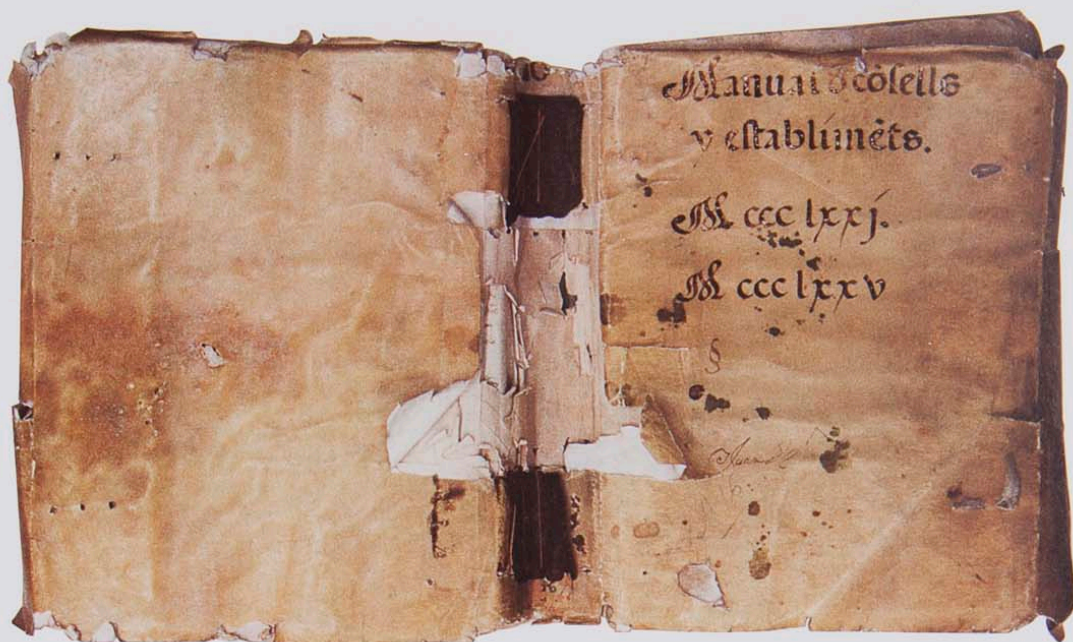 Manual d cõsells
y establimẽts.
M ccc lxxj.
M ccc lxxv
§